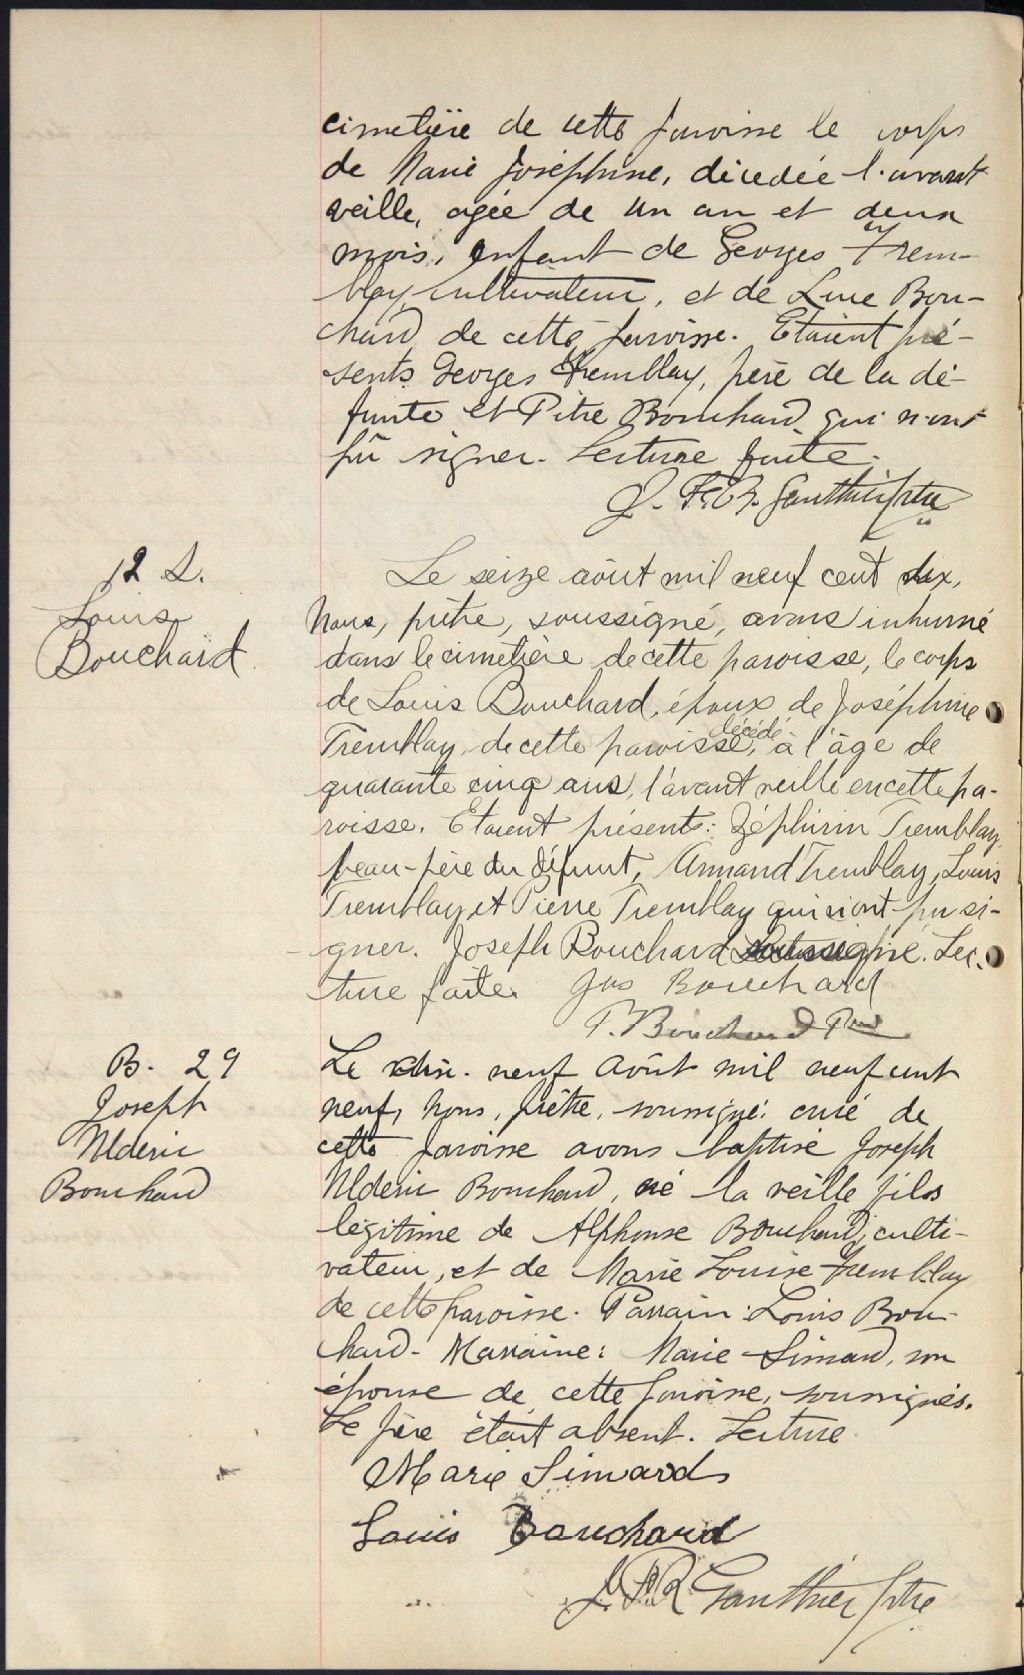 cimetière de cette paroisse le corps
de Marie Joséphine, décédée l'avant
veille, agée de un an et deux
mois, enfant de Georges Trem-
blay, cultivateur, et de Luce Bou-
chard de cette paroisse. Etaient pré-
sents Georges Tremblay, père de la dé-
funte et Pitre Bouchard qui n'ont
pû signer. Lecture faite.
J. Gauthier ptre
12 S.
Louis
Bouchard
Le seize août mil neuf cent dix,
Nous, prêtre, soussigné, avons inhumé
dans le cimetière de cette paroisse, le corps
de Louis Bouchard, époux de Joséphine
Tremblay, de cette paroisse, décédé à l'âge de
quarante cinq ans, l'avant veille en cette pa-
roisse. Etaient présents: Zéphirin Tremblay
beau-père du défunt, Armand Tremblay, Louis
Tremblay et Pierre Tremblay qui n'ont pu si-
gner. Joseph Bouchard soussigné. Lec-
ture faite. Jos Bouchard
T. Bouchard Ptre
B. 29
Joseph
Uldéric
Bouchard
Le dix-neuf Août mil neuf cent
neuf, Nous, prêtre, soussigné, curé de
cette paroisse avons baptisé Joseph
Uldéric Bouchard, né la veille fils
légitime de Alphonse Bouchard, culti-
vateur, et de Marie Louise Tremblay
de cette paroisse. Parrain: Louis Bou-
chard. Marraine: Marie Simard, son
épouse de cette paroisse, soussignés.
Le père était absent. Lecture
Marie Simard
Louis Bouchard
Gauthier ptre